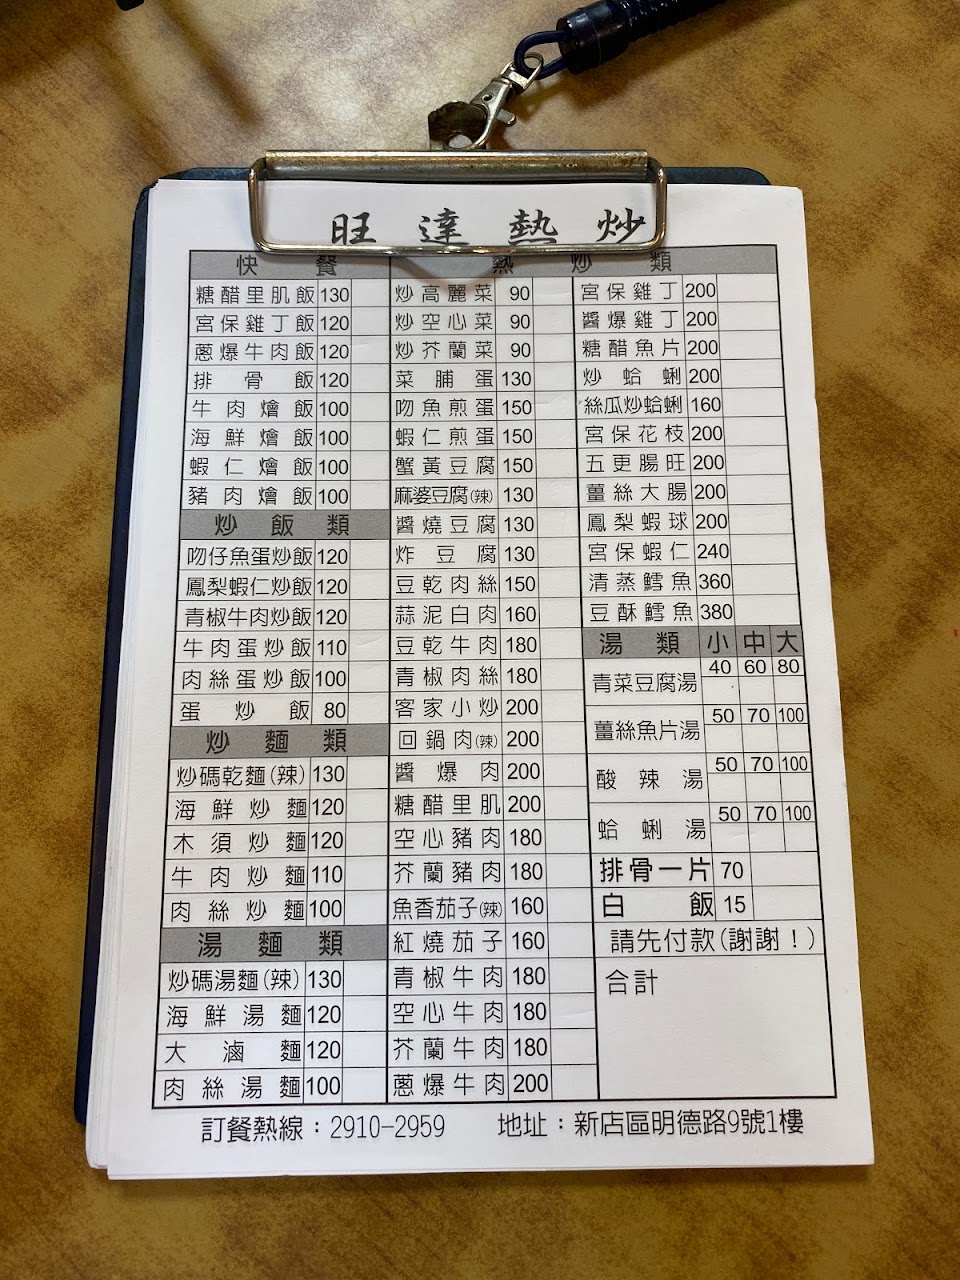 旺達熱炒
快餐
糖醋里肌飯 130
宮保雞丁飯 120
蔥爆牛肉飯 120
排骨飯 120
牛肉燴飯 100
海鮮燴飯 100
蝦仁燴飯 100
豬肉燴飯 100
炒飯類
吻仔魚蛋炒飯 120
鳳梨蝦仁炒飯 120
青椒牛肉炒飯 120
牛肉蛋炒飯 110
肉絲蛋炒飯 100
蛋炒飯 80
炒麵類
炒碼乾麵(辣) 130
海鮮炒麵 120
木須炒麵 120
牛肉炒麵 110
肉絲炒麵 100
湯麵類
炒碼湯麵(辣) 130
海鮮湯麵 120
大滷麵 120
肉絲湯麵 100
熱炒類
炒高麗菜 90
炒空心菜 90
炒芥蘭菜 90
菜脯蛋 130
吻魚煎蛋 150
蝦仁煎蛋 150
蟹黃豆腐 150
麻婆豆腐(辣) 130
醬燒豆腐 130
炸豆腐 130
豆乾肉絲 150
蒜泥白肉 160
豆乾牛肉 180
青椒肉絲 180
客家小炒 200
回鍋肉(辣) 200
醬爆肉 200
糖醋里肌 200
空心豬肉 180
芥蘭豬肉 180
魚香茄子(辣) 160
紅燒茄子 160
青椒牛肉 180
空心牛肉 180
芥蘭牛肉 180
蔥爆牛肉 200
宮保雞丁 200
醬爆雞丁 200
糖醋魚片 200
炒蛤蜊 200
絲瓜炒蛤蜊 160
宮保花枝 200
五更腸旺 200
薑絲大腸 200
鳳梨蝦球 200
宮保蝦仁 240
清蒸鱈魚 360
豆酥鱈魚 380
湯類 小 中 大
青菜豆腐湯 40 60 80
薑絲魚片湯 50 70 100
酸辣湯 50 70 100
蛤蜊湯 50 70 100
排骨一片 70
白飯 15
請先付款(謝謝！)
合計
訂餐熱線：2910-2959 地址：新店區明德路9號1樓